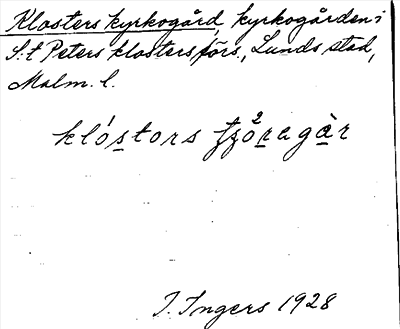 Klosters kyrkogård, kyrkogården i
S:t Peters klosters förs., Lunds stad,
Malm. l.
klóstors
I. Ingers 1928